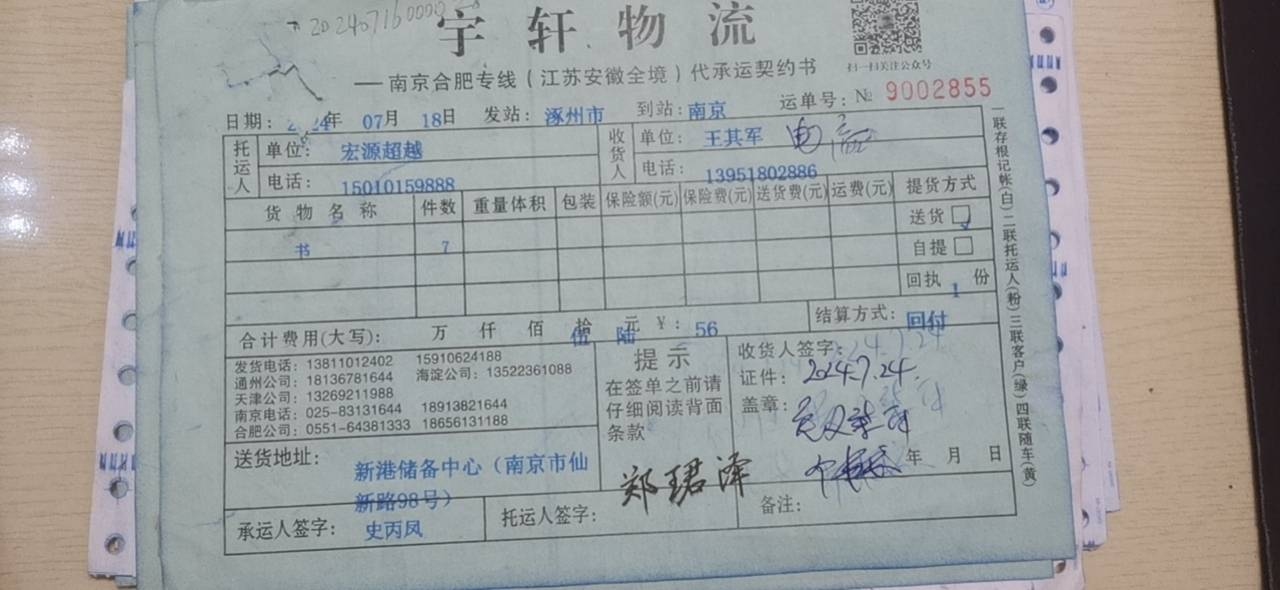 2024071600
宇轩物流
扫一扫关注公众号
——南京合肥专线（江苏安徽全境）代承运契约书
运单号：№ 9002855
日期： 2024年 07月 18日 发站：涿州市 到站：南京
托运人 单位： 宏源超越 收货人 单位： 王其军
电话： 15010159888 电话： 13951802886
货物名称 件数 重量体积 包装 保险额(元) 保险费(元) 送货费(元) 运费(元) 提货方式
书 7 送货☑
自提☐
回执 1 份
合计费用(大写)： 万 仟 佰 伍拾 陆元 ￥： 56 结算方式： 回付
发货电话：13811012402 15910624188
通州公司：18136781644 海淀公司：13522361088
天津公司：13269211988
南京电话：025-83131644 18913821644
合肥公司：0551-64381333 18656131188
提示
在签单之前请
仔细阅读背面
条款
收货人签字：
证件： 2024.7.24.
盖章：
年 月 日
送货地址： 新港储备中心（南京市仙
新路98号）
承运人签字： 史丙凤 托运人签字： 郑珺泽 备注：
一联存根记帐(白)二联托运人(粉)三联客户(绿)四联随车(黄)